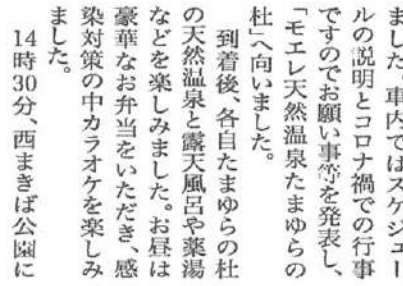 ました。車内ではスケジュー
ルの説明とコロナ禍での行事
ですのでお願い事等を発表し、
「モエレ天然温泉たまゆらの
杜」へ向いました。
到着後、各自たまゆらの杜
の天然温泉と露天風呂や薬湯
などを楽しみました。お昼は
豪華なお弁当をいただき、感
染対策の中カラオケを楽しみ
ました。
14時30分、西まきば公園に